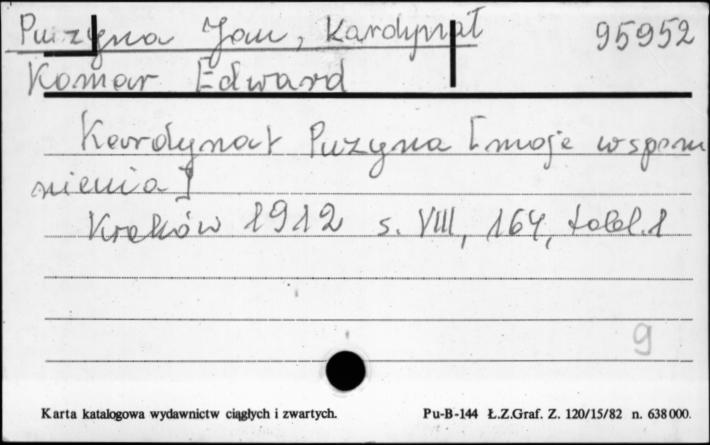 Puzyna Jan, Kardynał 95952
Komar Edward
Kardynał Puzyna [moje wspom
nienia]
Kraków 1912 s. VIII, 164, tabl. 1
9
Karta katalogowa wydawnictw ciągłych i zwartych. Pu-B-144 Ł.Z.Graf. Z. 120/15/82 n. 638000.